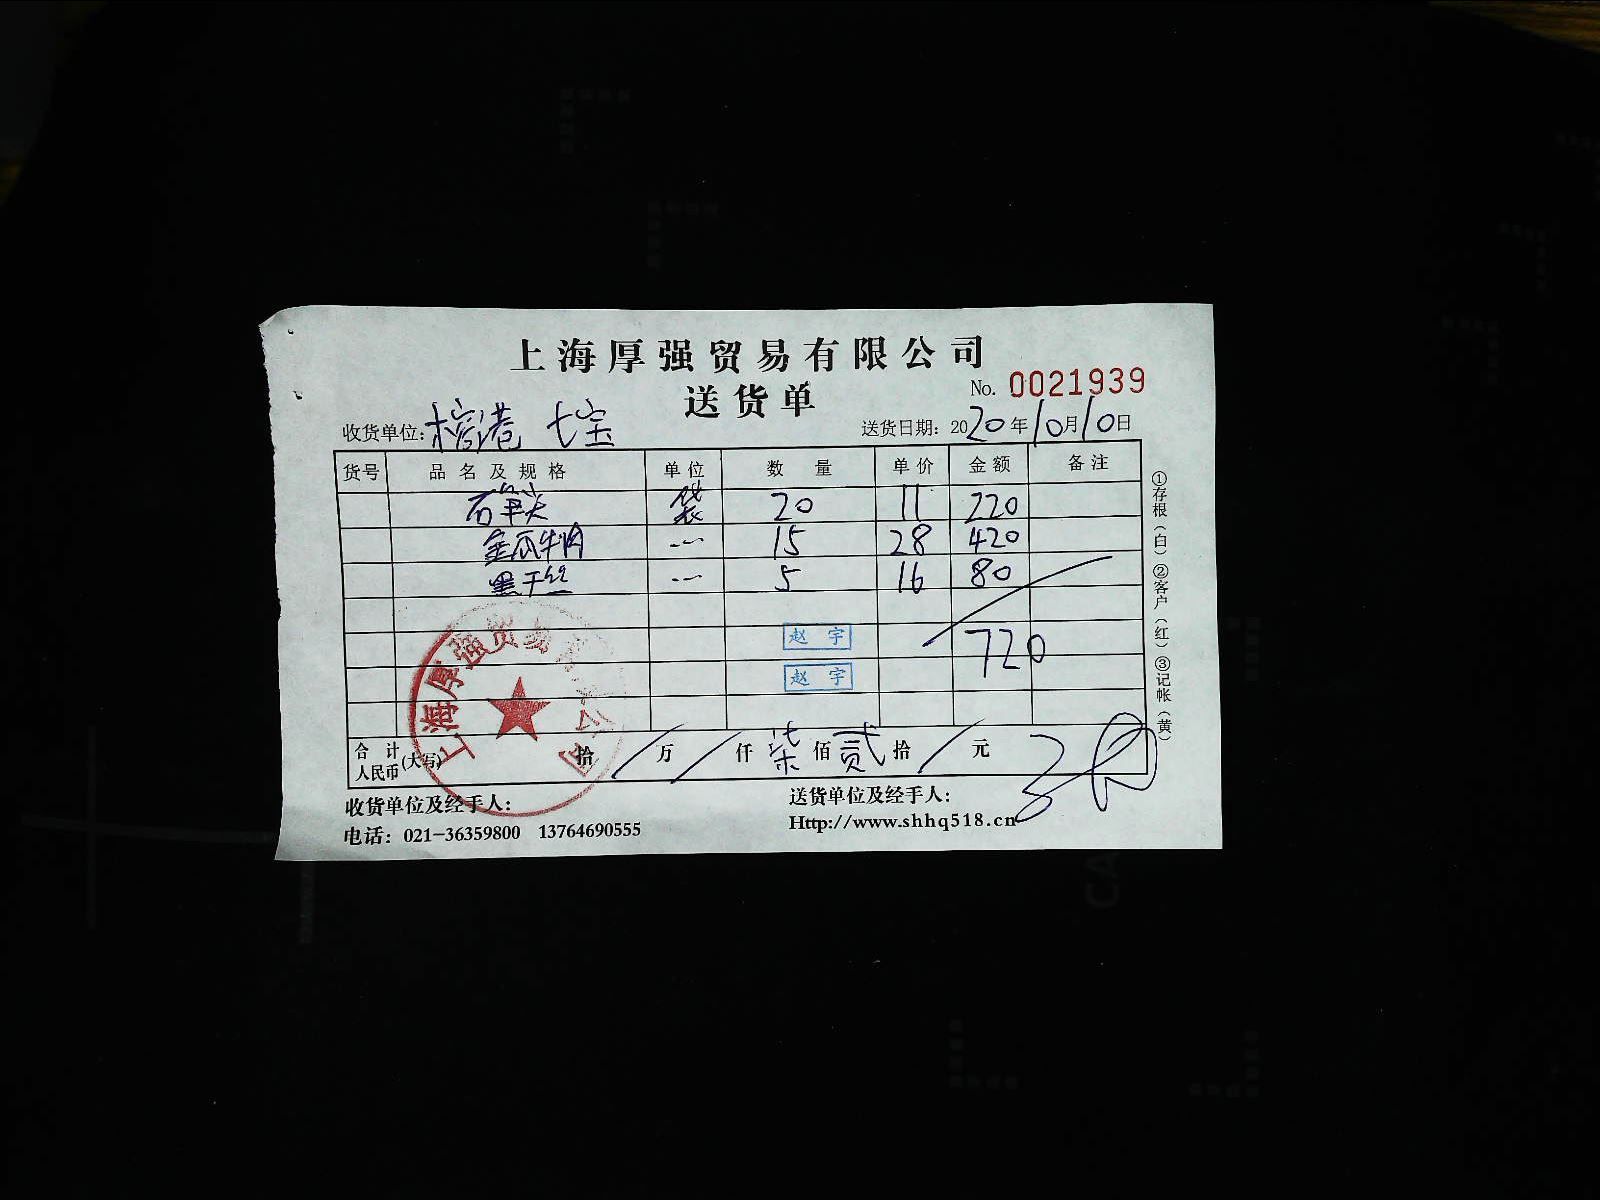 上海厚强贸易有限公司
送货单
No. 0021939
收货单位: 榕港 七宝
送货日期: 2020年10月10日
货号 品名及规格 单位 数量 单价 金额 备注
笋尖 袋 20 11 220
金瓜牛肉 〃 15 28 420
黑干丝 〃 5 16 80
赵宇
720
赵宇
合计人民币(大写) 拾/万/仟柒佰贰拾/元
收货单位及经手人:
送货单位及经手人:
电话: 021-36359800 13764690555
Http://www.shhq518.cn
①存根(白)②客户(红)③记帐(黄)
上海厚强贸易有限公司